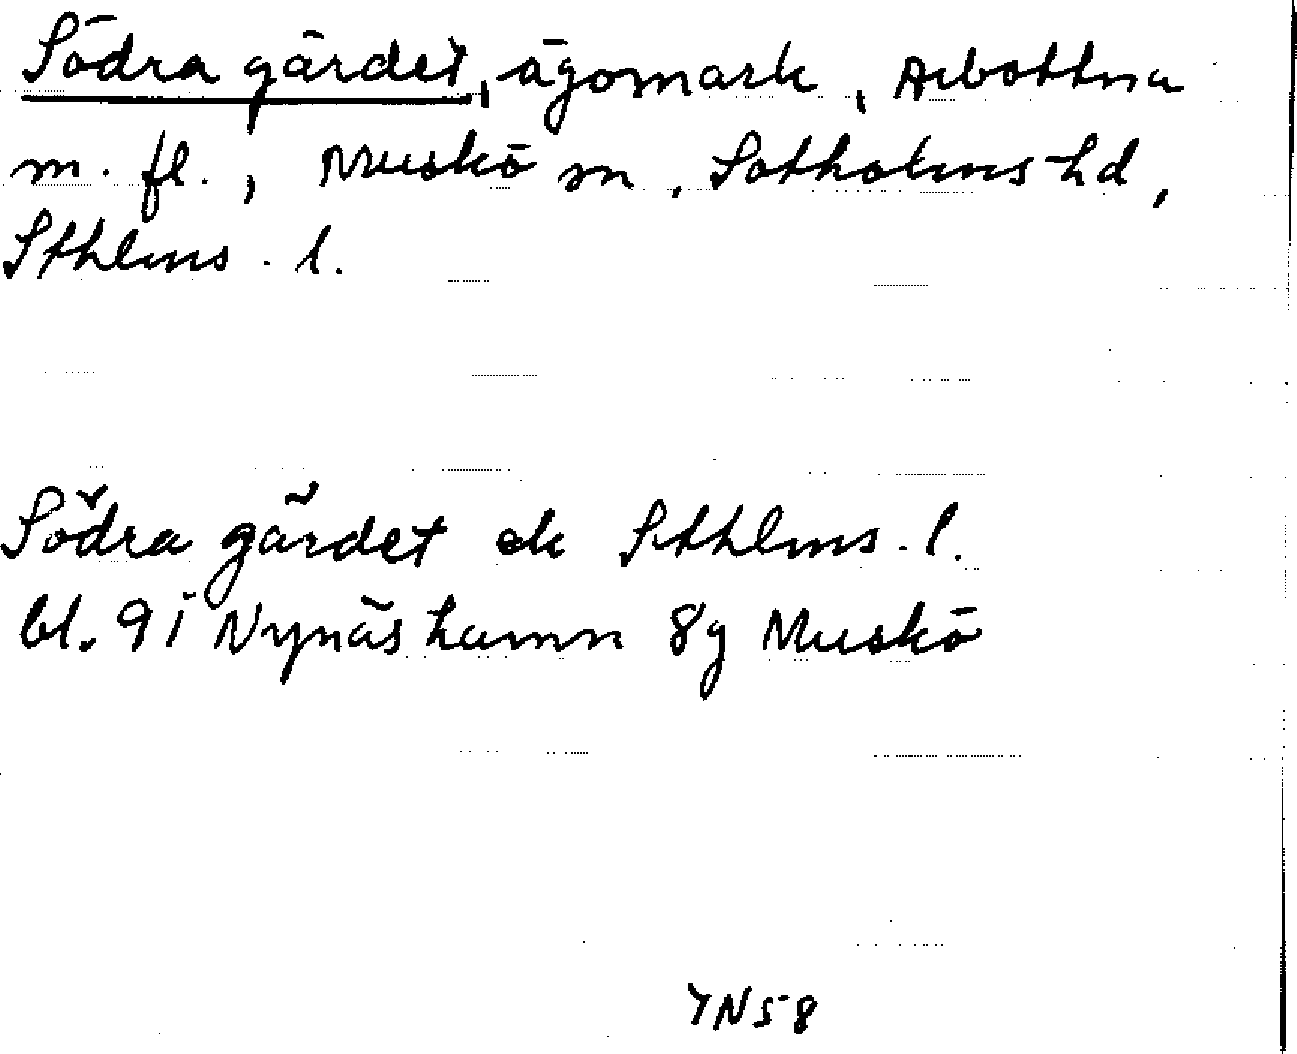 Södra gärdet, ägomark, Arbottna
m. fl., Muskö sn, Sotholms hd,
Sthlms. l.
Södra gärdet ek Sthlms. l.
bl. 9I Nynäshamn 8g Muskö
YN58